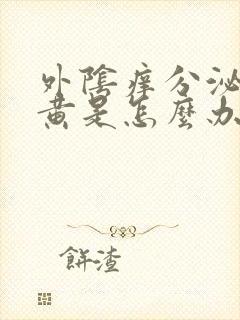 外陰痒分泌
黃是怎麼办
餅渣